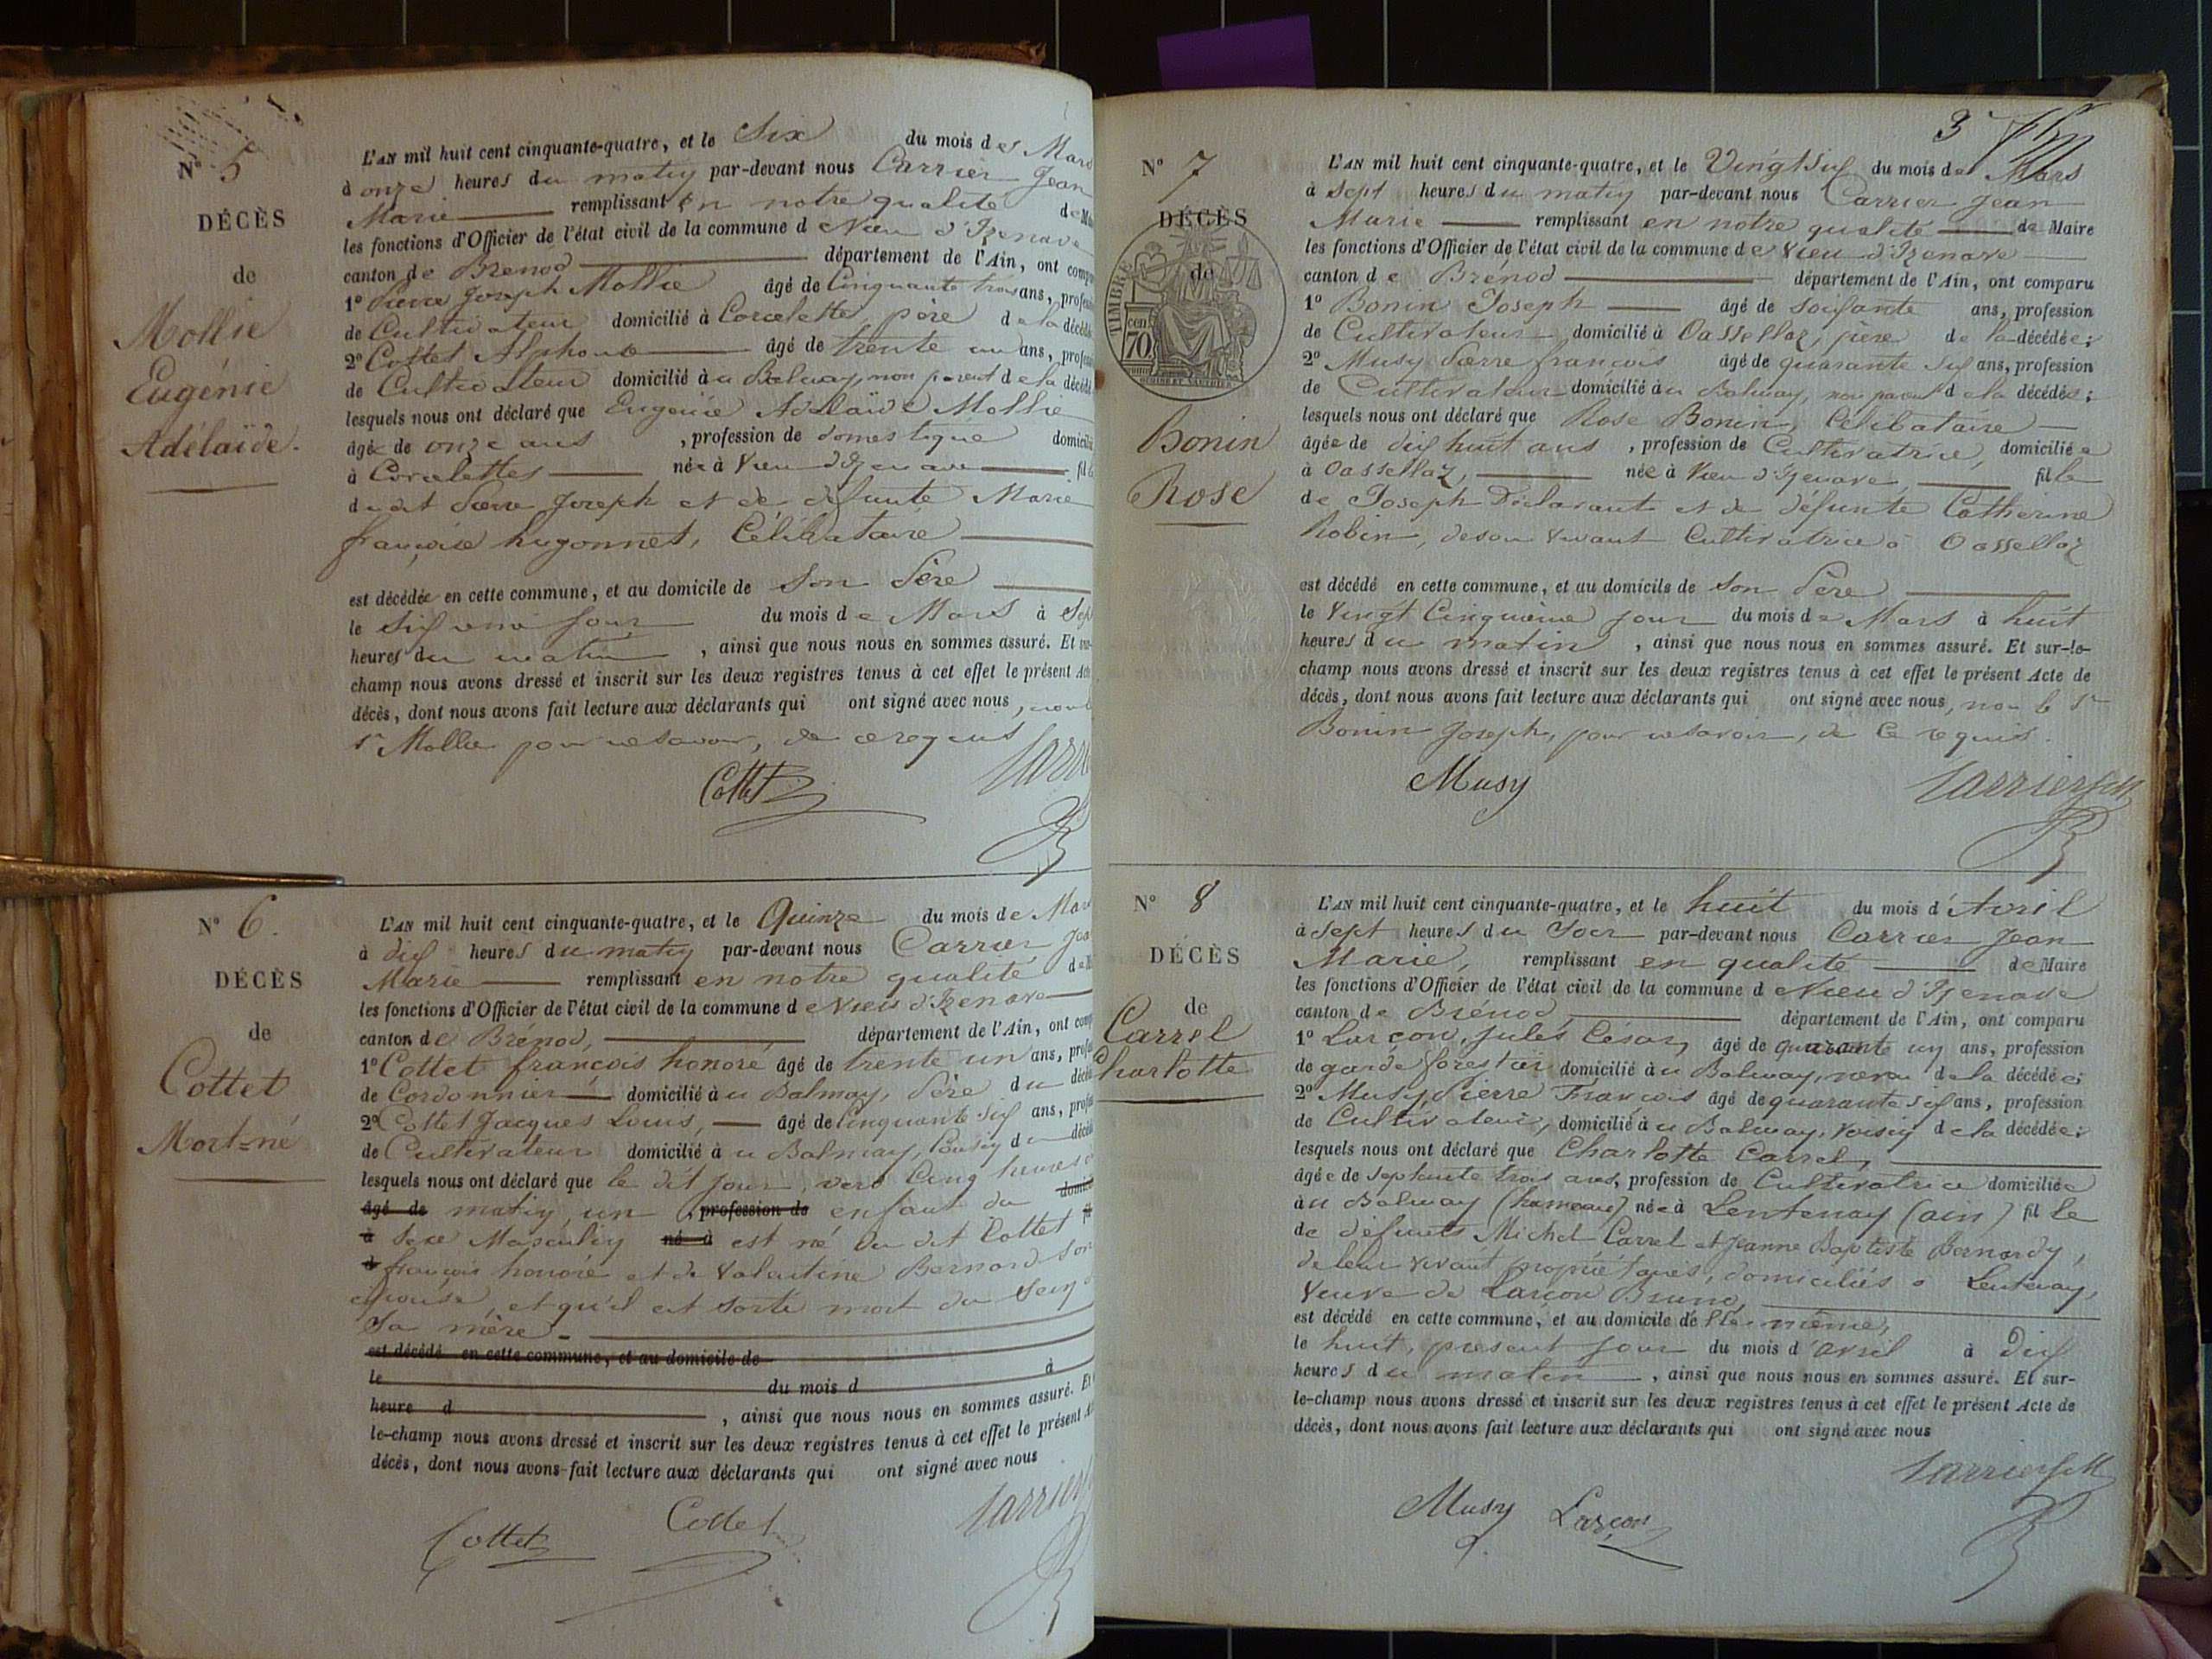 N° 5
DÉCÈS
de
Mollie
Eugénie
Adélaïde.
L'AN mil huit cent cinquante-quatre, et le Six du mois des Mars
à onze heures du matin par-devant nous Carrier Jean
Marie remplissant en notre qualité de
les fonctions d'Officier de l'état civil de la commune de Vieu d'Izenave
canton de Brenod département de l'Ain, ont
1° Pierre Joseph Mollie âgé de Cinquante trois ans,
de Cultivateur domicilié à Corcelette, père de la
2° Cottet Alphonse âgé de trente un ans,
de Cultivateur domicilié au Balmay, non parent de la
lesquels nous ont déclaré que Eugénie Adelaïde Mollie
âgée de onze ans , profession de domestique
à Corcelettes née à Vieu d'Izenave
dudit Pierre Joseph et de défunte Marie
françoise hugonnet, Célibataire
est décédée en cette commune, et au domicile de son Père
le jour du mois de Mars à
heures du matin , ainsi que nous nous en sommes assuré. Et
champ nous avons dressé et inscrit sur les deux registres tenus à cet effet le présent Acte
décès, dont nous avons fait lecture aux déclarants qui ont signé avec nous,
Sr Mollie pour ne savoir, de ce requis
Cottet
N° 6.
DÉCÈS
de
Cottet
Mort-né
L'AN mil huit cent cinquante-quatre, et le Quinze du mois de
à dix heures du matin par-devant nous Carrier
Marie remplissant en notre qualité
les fonctions d'Officier de l'état civil de la commune de Vieu d'Izenave
canton de Brénod, département de l'Ain, ont
1° Cottet françois honoré âgé de trente un ans,
de Cordonnier domicilié au Balmay, Père du
2° Cottet Jacques Louis, âgé de Cinquante six ans,
de Cultivateur domicilié au Balmay, Cousin du
lesquels nous ont déclaré que le dit jour, vers Cinq heures
âgé de matin, un , profession de enfant du
à sexe Masculin né à est né du dit Cottet
d françois honoré et de Valentine Bernard son
épouse, et qu'il est sorti mort du sein
sa mère.
est décédé en cette commune, et au domicile de
le du mois d à
heure d , ainsi que nous nous en sommes assuré.
le-champ nous avons dressé et inscrit sur les deux registres tenus à cet effet le présent
décès, dont nous avons fait lecture aux déclarants qui ont signé avec nous
Cottet Cottet
3
N° 7
DÉCÈS
de
TIMBRE
70
Bonin
Rose
L'AN mil huit cent cinquante-quatre, et le Vingt Six du mois de Mars
à sept heures du matin par-devant nous Carrier Jean
Marie remplissant en notre qualité de Maire
les fonctions d'Officier de l'état civil de la commune de Vieu d'Izenave
canton de Brénod département de l'Ain, ont comparu
1° Bonin Joseph âgé de soixante ans, profession
de Cultivateur domicilié à Oassellaz, père de la décédée;
2° Musy Pierre françois âgé de quarante six ans, profession
de Cultivateur domicilié au Balmay, non parent de la décédée;
lesquels nous ont déclaré que Rose Bonin, Célibataire
âgée de dix huit ans , profession de Cultivatrice, domiciliée
à Oassellaz, née à Vieu d'Izenave, fille
de Joseph Déclarant et de défunte Catherine
Robin, de son vivant Cultivatrice à Oassellaz
est décédé en cette commune, et au domicile de son Père
le Vingt Cinquième jour du mois de Mars à huit
heures du matin , ainsi que nous nous en sommes assuré. Et sur-le-
champ nous avons dressé et inscrit sur les deux registres tenus à cet effet le présent Acte de
décès, dont nous avons fait lecture aux déclarants qui ont signé avec nous, non le Sr
Bonin Joseph, pour ne savoir, de ce requis.
Musy Carrier JM
N° 8
DÉCÈS
de
Carrel
Charlotte
L'AN mil huit cent cinquante-quatre, et le huit du mois d'Avril
à sept heures du Soir par-devant nous Carrier Jean
Marie, remplissant en qualité de Maire
les fonctions d'Officier de l'état civil de la commune de Vieu d'Izenave
canton de Brénod département de l'Ain, ont comparu
1° Larçon, Jules César, âgé de quarante un ans, profession
de garde forestier domicilié au Balmay, neveu de la décédée;
2° Musy Pierre François âgé de quarante six ans, profession
de Cultivateur, domicilié au Balmay, voisin de la décédée;
lesquels nous ont déclaré que Charlotte Carrel,
âgée de septante trois ans, profession de Cultivatrice domiciliée
au Balmay (hameau) née à Lentenay (ain) fille
de défunts Michel Carrel et Jeanne Baptiste Bernardy,
de leur vivant propriétaires, domiciliés à Lentenay,
Veuve de Larçon Bruno,
est décédé en cette commune, et au domicile de Elle-même,
le huit, présent jour du mois d'avril à Dix
heures du matin , ainsi que nous nous en sommes assuré. Et sur-
le-champ nous avons dressé et inscrit sur les deux registres tenus à cet effet le présent Acte de
décès, dont nous avons fait lecture aux déclarants qui ont signé avec nous
Carrier JM
Musy Larçon